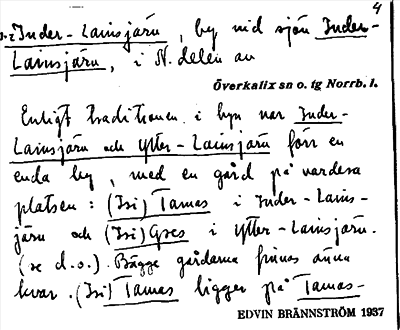 4
1-2 Inder-Lainsjärv, by vid sjön Inder-
Lainsjärv, i N. delen av
Överkalix sn o. tg Norrb. l.
Enligt traditionen i byn var Inder-
Lainsjärv och Ytter-Lainsjärv förr en
enda by, med en gård på vardera
platsen: (Isi) Tamas i Inder-Lains-
järv och (Isi) Gres i Ytter-Lainsjärv.
(se d.o.). Bägge gårdarna finnas ännu
kvar. (Isi) Tamas ligger på Tamas-
EDVIN BRÄNNSTRÖM 1937